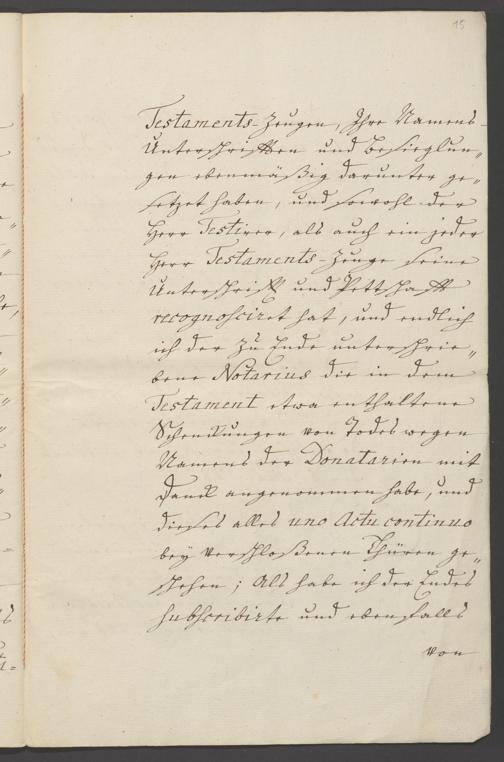 15
Testaments-Zeugen, Ihre Namens-
Unterschrifften und Besieglun„
gen ebenmäßig darunter ge„
setzet haben, und sowohl der
Herr Testirer, als auch ein jeder
Herr Testaments-Zeuge seine
Unterschrifft und Pettschafft
recognosciret hat, und endlich
ich der zu Ende unterschrie„
bene Notarius die in dem
Testament etwa enthaltene
Schenkungen von Todes wegen
Namens der Donatarien mit
Danck angenommen habe, und
dieses alles uno Actu continuo
bey verschloßenen Thüren ge„
schehen; Als habe ich der Endes
subscribirte und ebenfalls
von